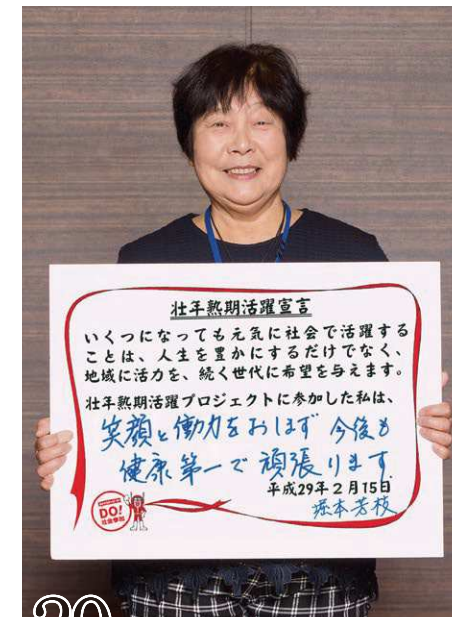 壮年熟期活躍宣言
いくつになっても元気に社会で活躍する
ことは、人生を豊かにするだけでなく、
地域に活力を、続く世代に希望を与えます。
壮年熟期活躍プロジェクトに参加した私は、
笑顔と働力をおしまず 今後も
健康第一で 頑張ります
平成29年2月15日
堀本芳枝
DO!
社会参加
20